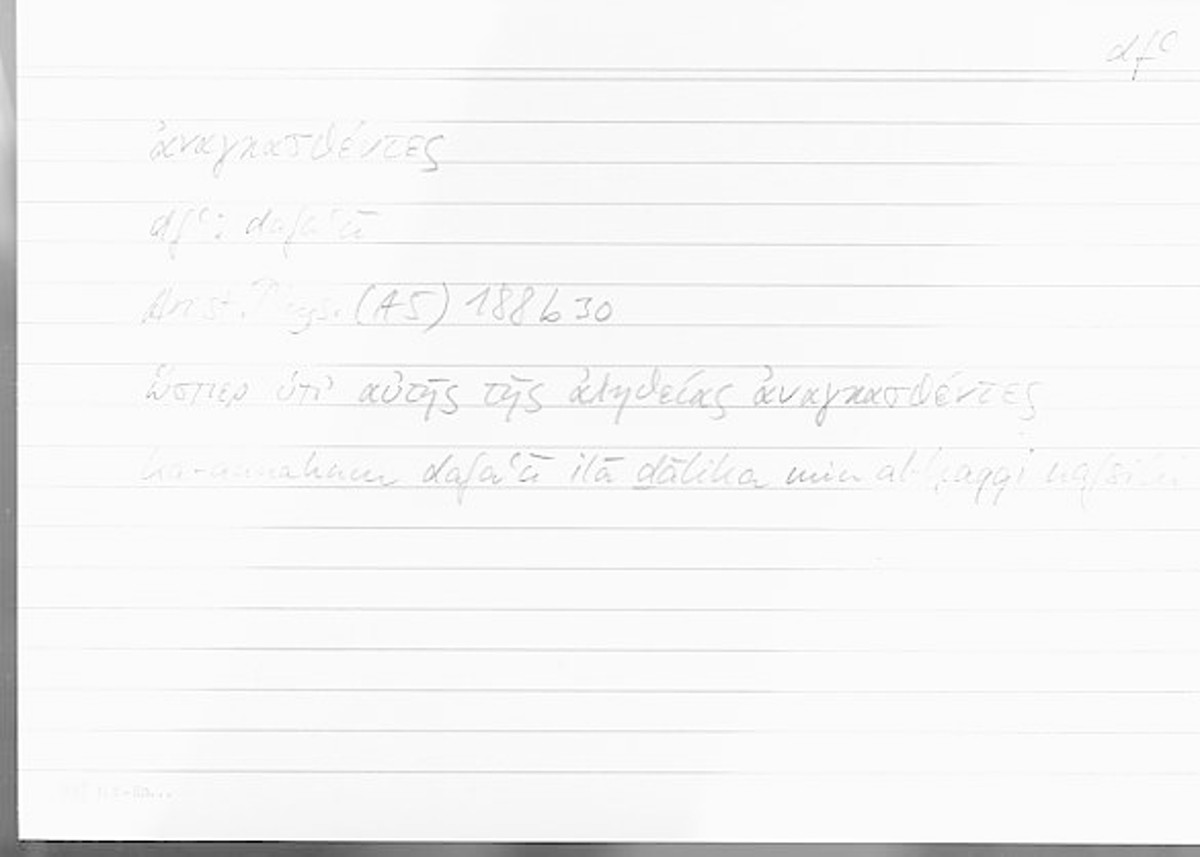 dfʿ
ἀναγκασθέντες
dfʿ: dafaʿū
Arist. Phys. (A5) 188b30
ὥσπερ ὑπ' αὐτῆς τῆς ἀληθείας ἀναγκασθέντες
ka-annahum dafaʿū ilā ḏālika min al-ḥaqqi nafsihi